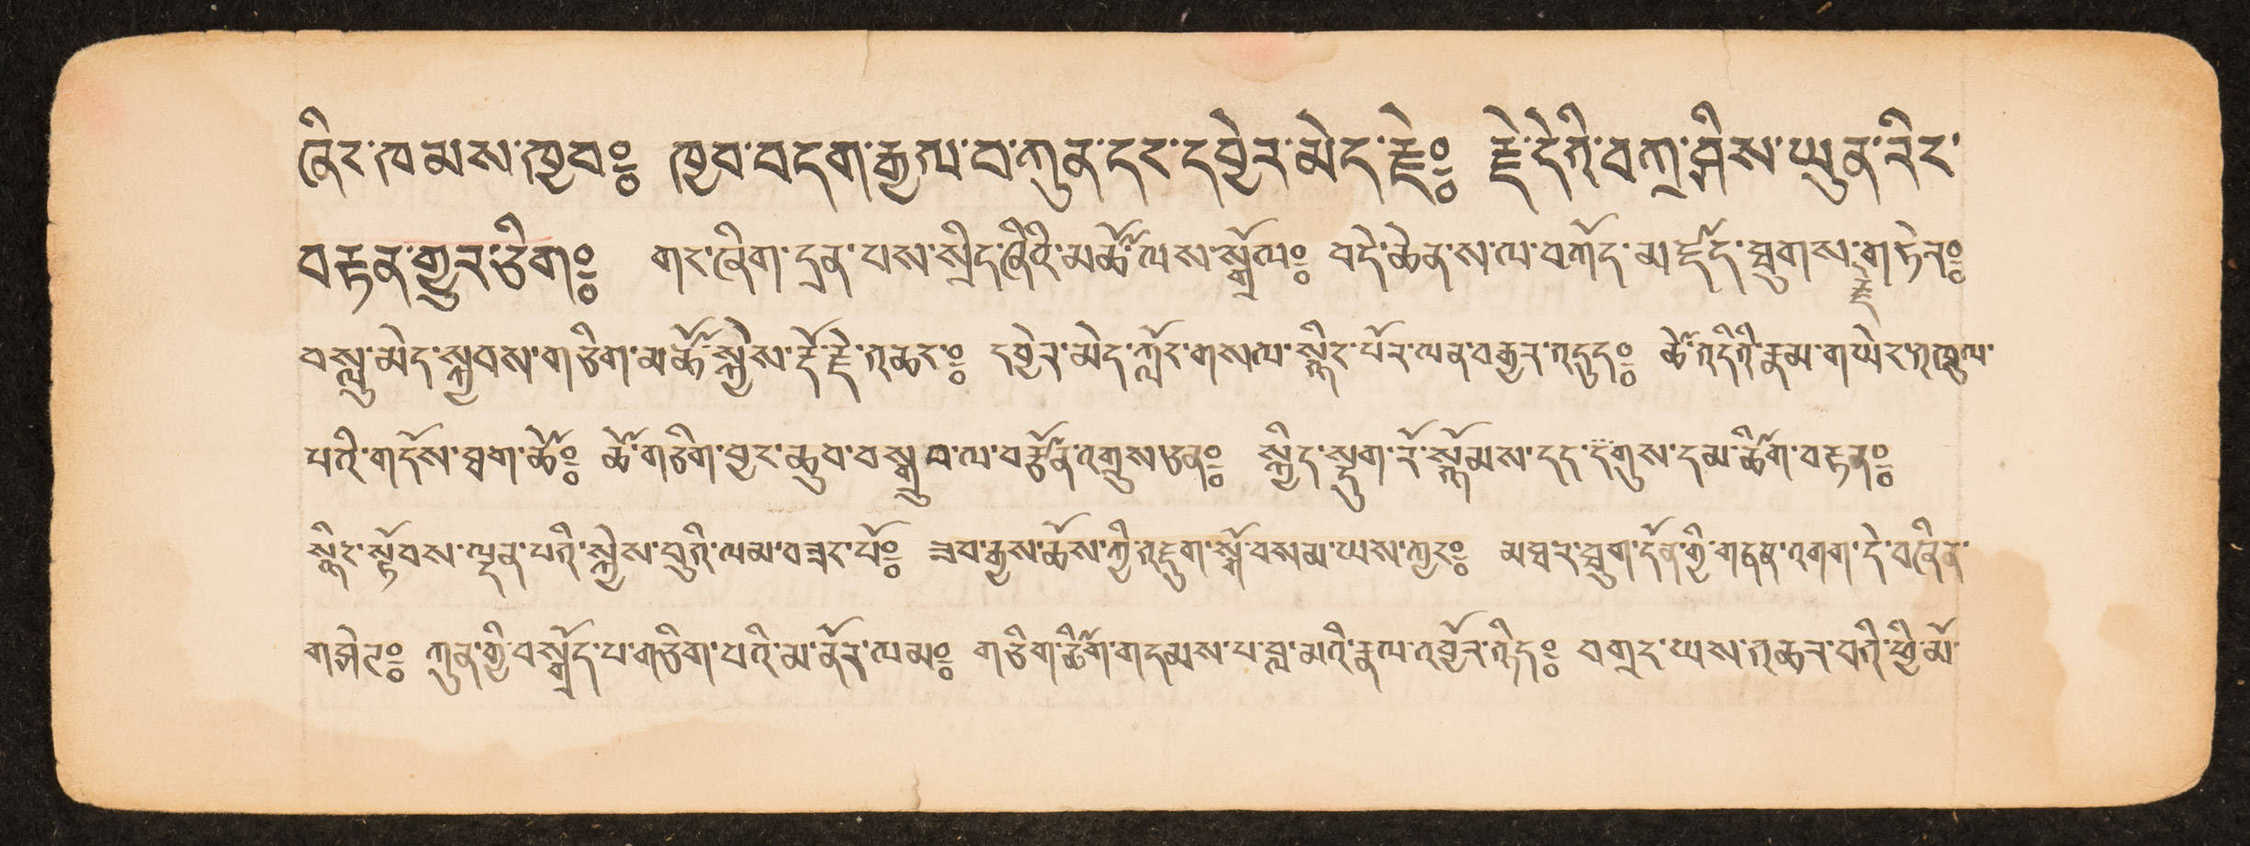 ཞིང་ཁམས་ཁྱབ༔ ཁྱབ་བདག་རྒྱལ་བ་ཀུན་དང་དབྱེར་མེད་རྗེ༔ རྗེ་དེའི་བཀྲ་ཤིས་ཡུན་རིང་
བརྟན་གྱུར་ཅིག༔ གང་ཞིག་དྲན་པས་སྲིད་ཞིའི་མཚོ་ལས་སྒྲོལ༔ བདེ་ཆེན་ས་ལ་བཀོད་མཛད་ཐུགས་རྗེ་གཏེར༔
བསླུ་མེད་སྐྱབས་གཅིག་མཚོ་སྐྱེས་རྡོ་རྗེ་འཆང་༔ དབྱེར་མེད་ཀློང་གསལ་སྙིང་པོར་ལན་བརྒྱར་འདུད༔ ཚེ་འདིའི་རྣམ་གཡེང་འཁྲུལ་
པའི་གདོས་ཐག་ཆོད༔ ཚེ་གཅིག་བྱང་ཆུབ་བསྒྲུབ་ལ་བརྩོན་འགྲུས་ཅན༔ སྐྱིད་སྡུག་རོ་སྙོམས་དད་གུས་དམ་ཚིག་བརྟན༔
སྙིང་སྟོབས་ལྡན་པའི་སྐྱེས་བུའི་ལམ་བཟང་པོ༔ ཟབ་རྒྱས་ཆོས་ཀྱི་འཇུག་སྒོ་བསམ་ཡས་ཀྱང་༔ མཐར་ཐུག་དོན་གྱི་གནས་འགག་དེ་བཞིན་
གཤེགས༔ ཀུན་གྱི་བསྒྲོད་པ་གཅིག་པའི་མ་ནོར་ལམ༔ གཅིག་ཆོག་གདམས་པ་བླ་མའི་རྣལ་འབྱོར་ཉིད༔ བགྲང་ཡས་འཆད་བའི་ཕྱི་མོ་